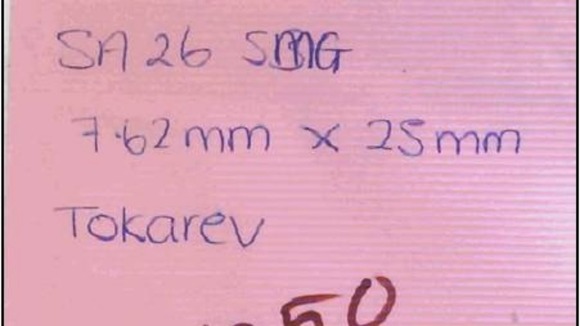 SA 26 SMG
7.62mm x 25mm
Tokarev
50